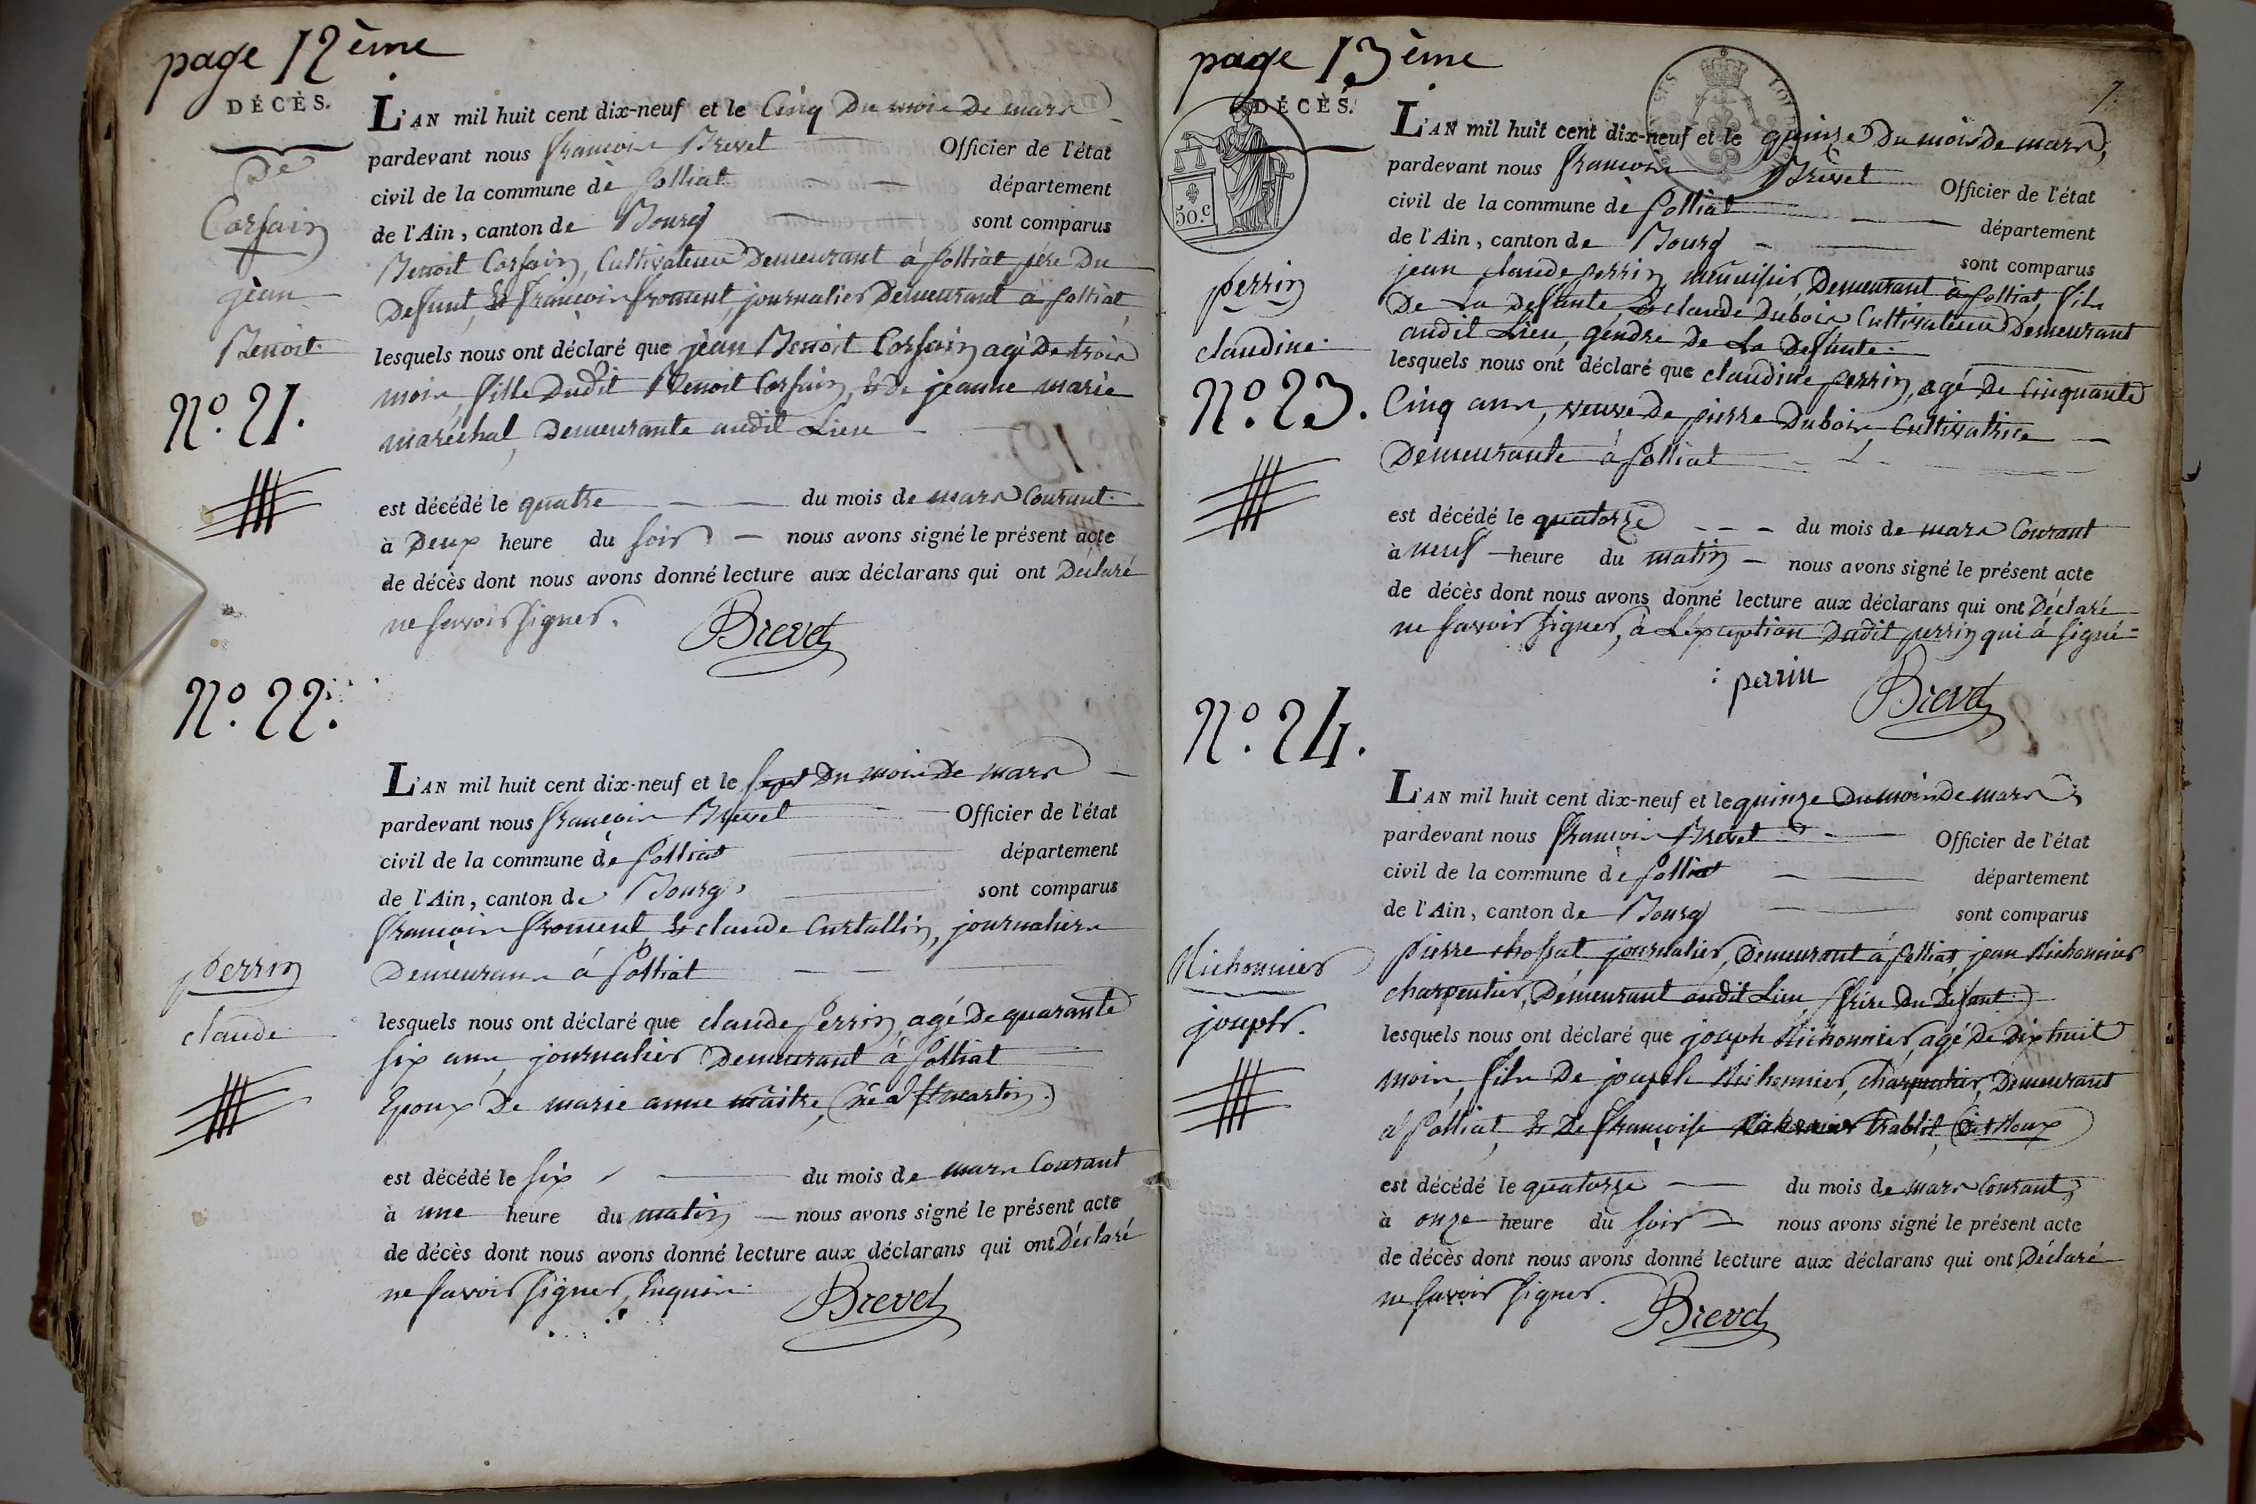 page 12ème
DÉCÈS.
De
Corsain
jean
Benoit
N.° 21.
L'AN mil huit cent dix-neuf et le Cinq Du mois De mars
pardevant nous françois Brevet Officier de l'état
civil de la commune de Polliat département
de l'Ain, canton de Bourg sont comparus
Benoit Corsain, Cultivateur Demeurant à Polliat père Du
Defunt, & françois froment, journalier Demeurant à Polliat,
lesquels nous ont déclaré que jean Benoit Corsain agé De trois
mois, fills Dudit Benoit Corsain, & De jeanne marie
maréchal, Demeurante audit Lieu
est décédé le quatre du mois de mars Courant
à Deux heure du soir nous avons signé le présent acte
de décès dont nous avons donné lecture aux déclarans qui ont Déclaré
ne savoir signer.
Brevet
N.° 22.
perrin
claude
L'AN mil huit cent dix-neuf et le sept Du mois De mars
pardevant nous françois Brevet Officier de l'état
civil de la commune de Polliat département
de l'Ain, canton de Bourg, sont comparus
françois froment & claude Curtallin, journaliers
Demeurans à Polliat
lesquels nous ont déclaré que claude perrin, agé De quarante
six ans, journalier Demeurant à Polliat
Epoux De marie anne maitre, (né à St martin.)
est décédé le six du mois de mars Courant
à une heure du matin nous avons signé le présent acte
de décès dont nous avons donné lecture aux déclarans qui ont Déclaré
ne savoir signer, Enquis.
Brevet
page 13ème
7.
DÉCÈS.
50.c
perrin
claudine
N.° 23.
L'AN mil huit cent dix-neuf et le quinze Du mois De mars,
pardevant nous françois Brevet Officier de l'état
civil de la commune de Polliat département
de l'Ain, canton de Bourg sont comparus
jean claude perrin, menuisier, Demeurant à Polliat, fils
De La Defunte, & claude Dubois Cultivateur Demeurant
audit Lieu, gendre De La Defunte.
lesquels nous ont déclaré que claudine perrin, agé De Cinquante
Cinq ans, veuve De pierre Dubois, Cultivatrice
Demeurante à Polliat
est décédé le quatorze du mois de mars Courant
à neuf heure du matin nous avons signé le présent acte
de décès dont nous avons donné lecture aux déclarans qui ont Déclaré
ne savoir signer, à L'exception Dudit perrin qui à signé
perrin
Brevet
N.° 24.
Michonnier
joseph.
L'AN mil huit cent dix-neuf et le quinze Du mois De mars,
pardevant nous françois Brevet Officier de l'état
civil de la commune de Polliat département
de l'Ain, canton de Bourg sont comparus
Pierre chossat journalier, Demeurant à Polliat, jean Michonnier
charpentier, Demeurant audit Lieu, (frère Du Defunt.)
lesquels nous ont déclaré que joseph Michonnier, agé De Dix huit
mois, fils De joseph Michonnier, charpentier, Demeurant
à Polliat, & De françoise Trablit,
est décédé le quatorze du mois de mars Courant,
à onze heure du soir nous avons signé le présent acte
de décès dont nous avons donné lecture aux déclarans qui ont Déclaré
ne savoir signer.
Brevet